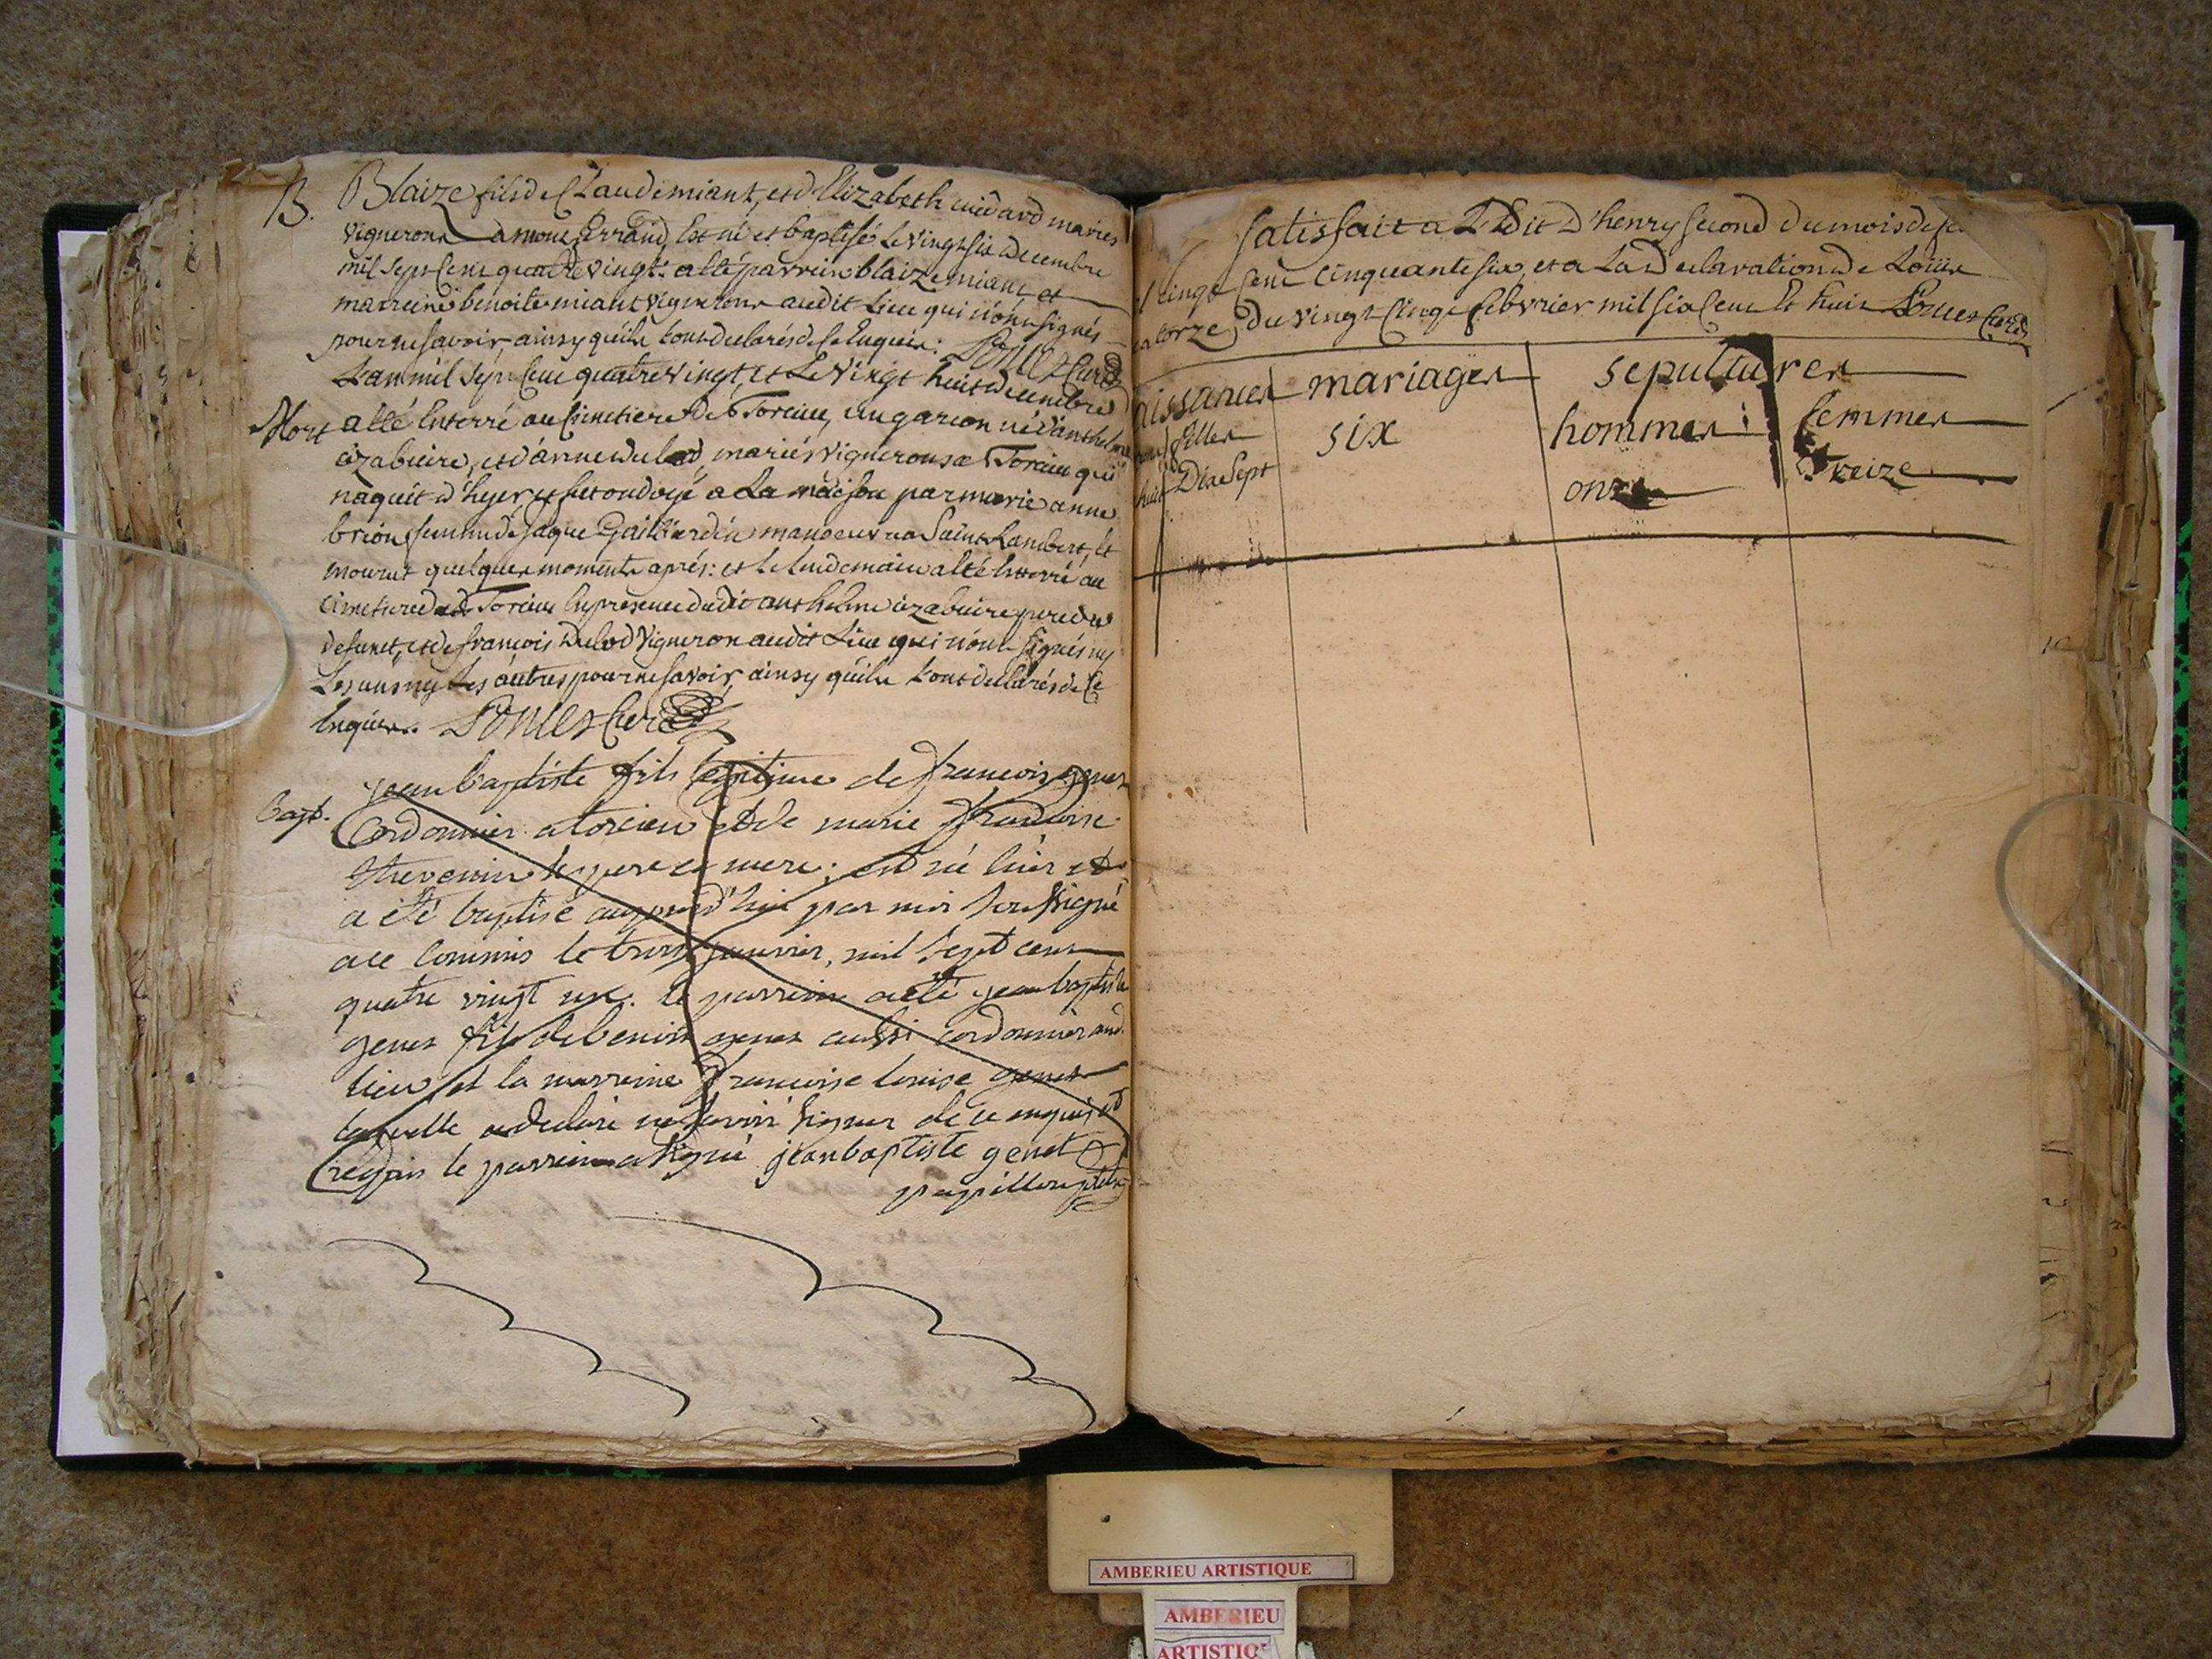 B. Blaize fils de Claude miant, et d'Elizabeth midard mariés
vignerons a montferrand, Est né et baptisé le vingt six decembre
mil sept cent quatre vingt: a été parrein blaize miant et
marreine benoite miant vignerons audit Lieu qui n'ont signés
pour ne savoir ainsy qu'ils l'ont declarés de ce Enquis:
L'an mil sept cent quatre vingt, et Le vingt huit decembre
Mort a été Enterré au Cimetiere de Torcieu, un garcon né d'anthelme
et d'anne mariés vignerons a Torcieu qui
naquit d'hyer, et fut ondoyé a La maison par marie anne
brion femme de jaque a Saint Lambert, Et
mourut quelques moments aprés: et Le lendemain a été Enterré au
cimetiere de Torcieu En presence dudit anthelme pere du
defunct, et de francois vigneron audit Lieu qui n'ont signés ny
Les uns ny Les autres pour ne savoir ainsy qu'ils L'ont declarés de Ce
Enquis. Curé
jean baptiste fils legitime de francois genet
Bapt. Cordonnier a torcieu et de marie francoise
thevenin ses pere et mere; est né hier et
a été baptisé aujourd'hui par moi soussigné
a ce commis le trois janvier, mil sept cent
quatre vingt un. le parrein a été jean baptiste
genet fils de benoit genet aussi cordonnier aud.
lieu et la marreine francoise louise genet
laquelle a declaré ne savoir signer de ce enquis et
requis le parrein a signé jean baptiste genet
papillon ptre
Satisfait a L'Edit d'henry second du mois de
cinq Cent Cinquante six, et a La Declaration de Loüis
atorze, du vingt Cinq febvrier mil six Cent Et huit Curé
aissances mariages sepultures
filles six hommes femmes
huit Dix Sept onze Treize
AMBERIEU ARTISTIQUE
AMBERIEU
ARTISTIQ